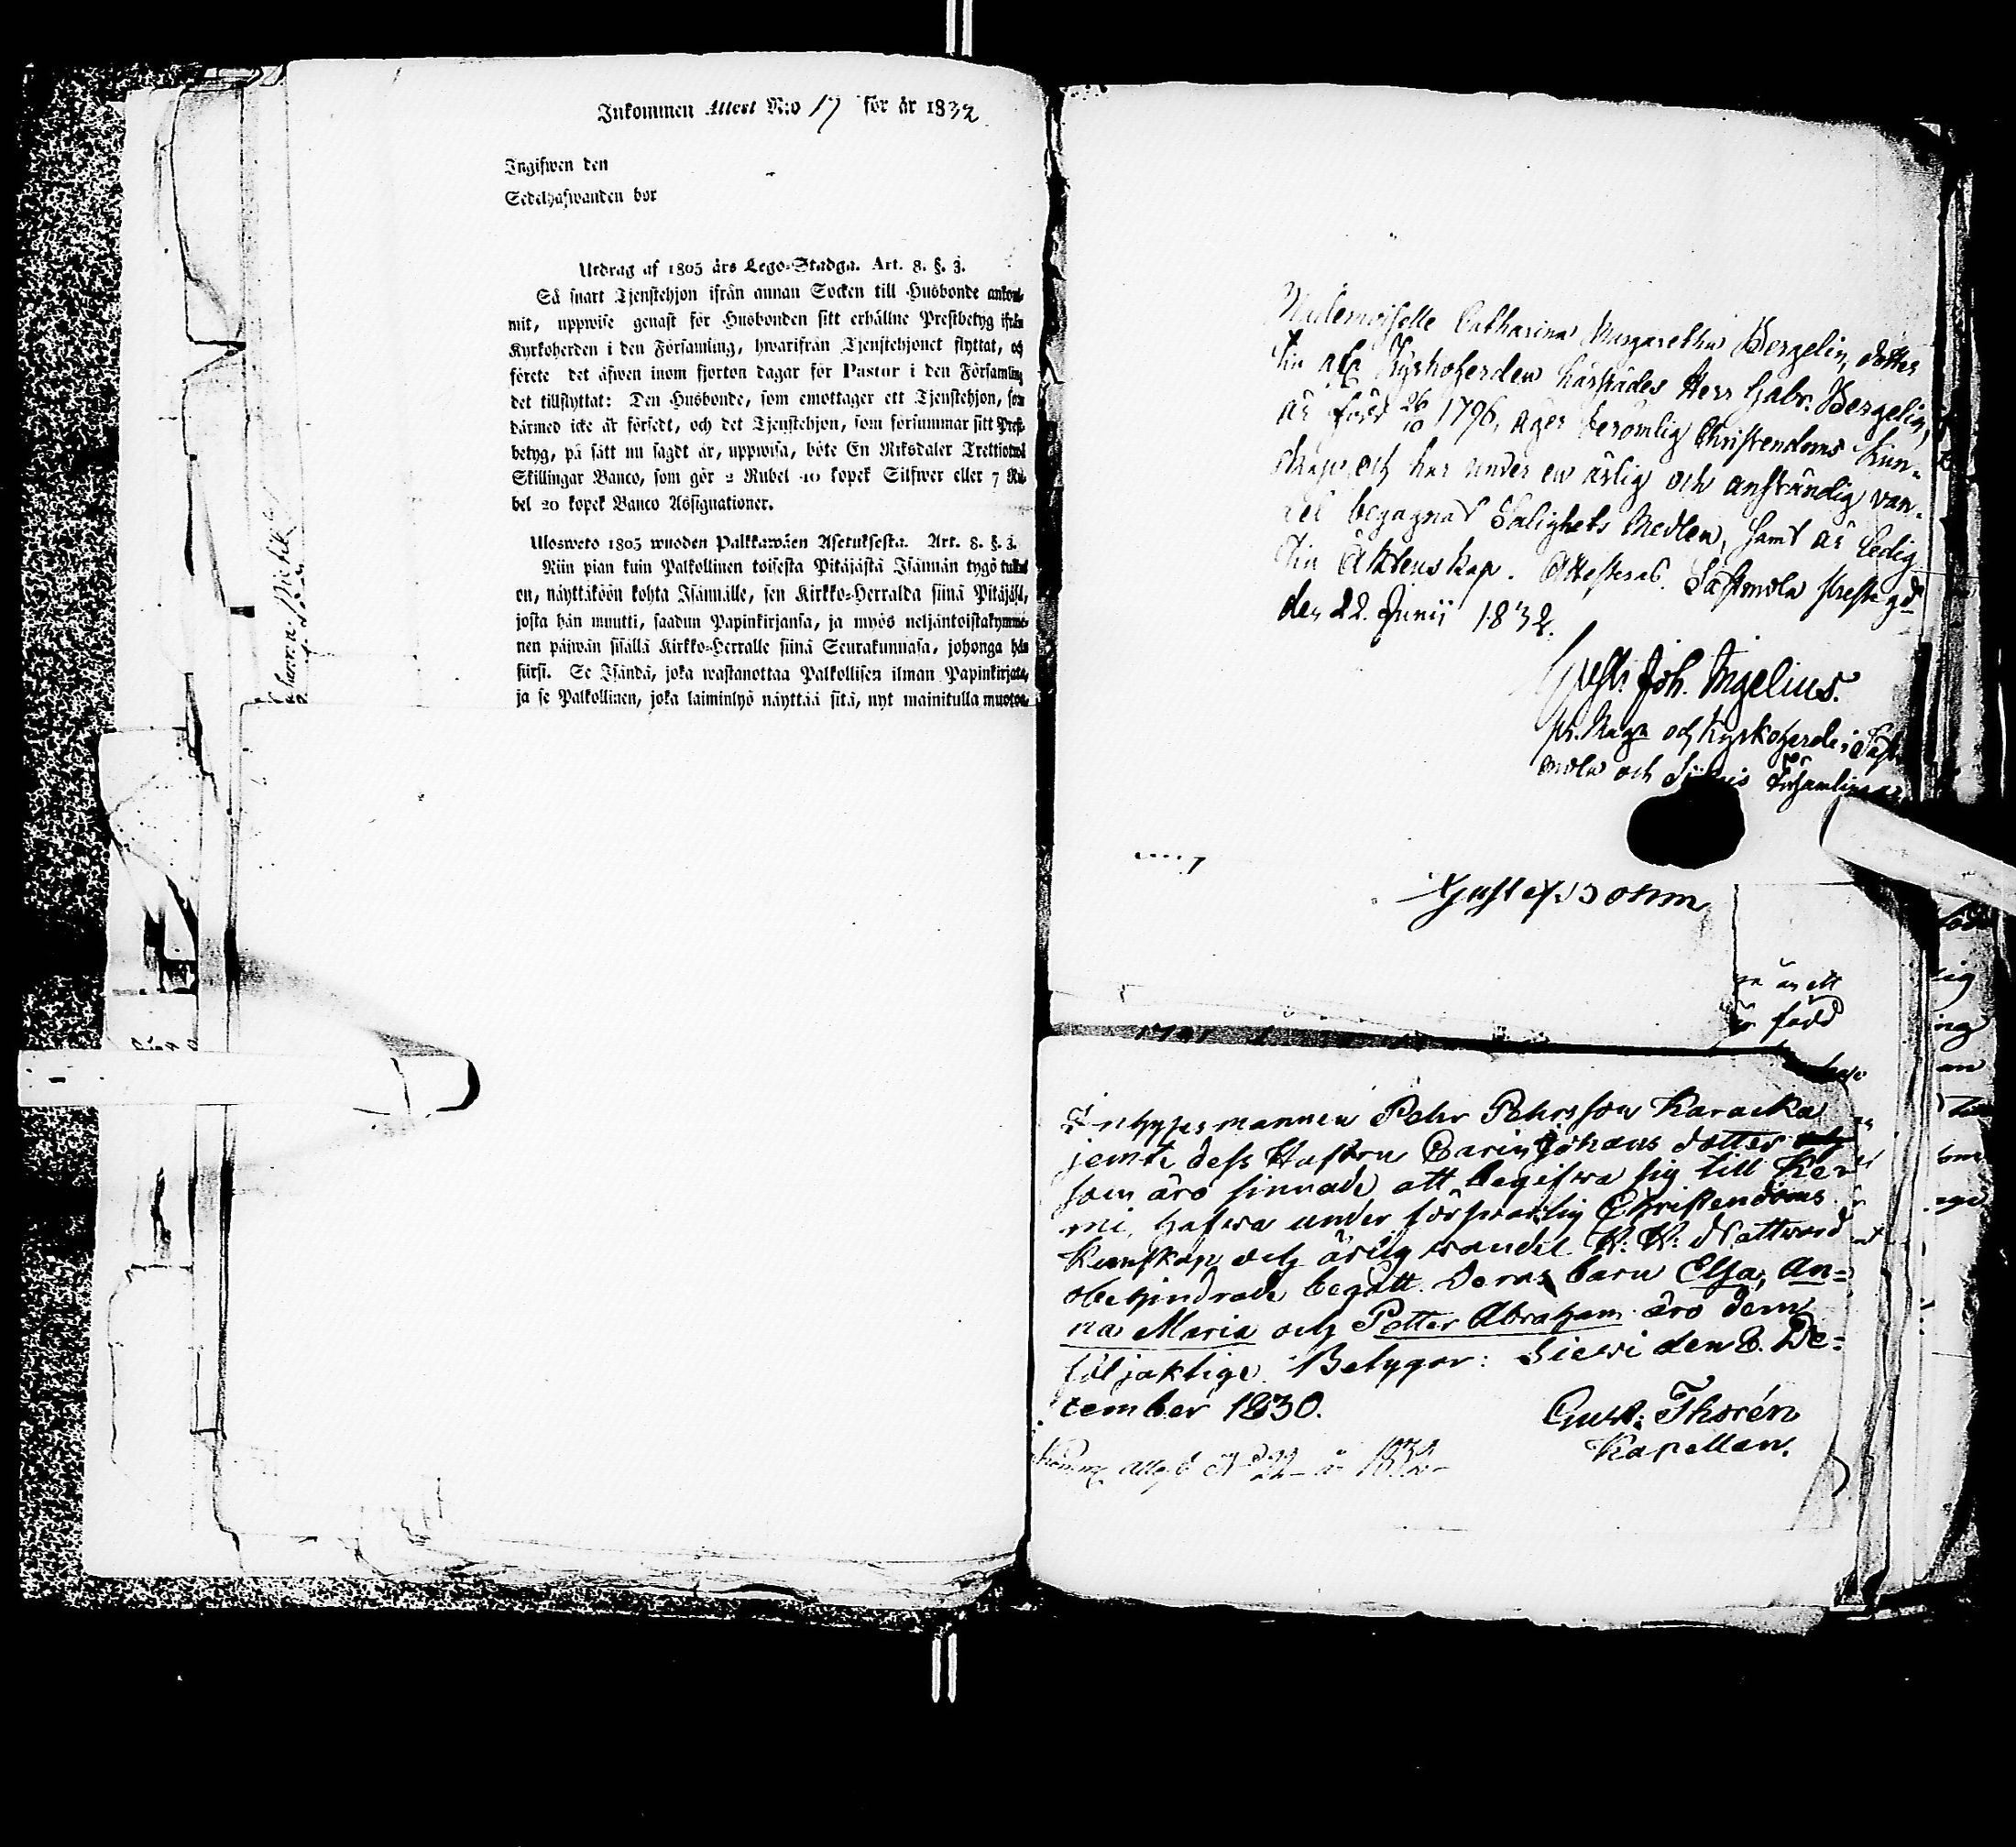 Inkommen Attest N:o 17 för år 1832
Ingifwen den
Sedelhafwanden bor
Utdrag af 1805 års Lego-Stadga. Art. 8. §. 3.
Så snart Tjenstehjon ifrån annan Socken till Husbonde ankom-
mit, uppwise genast för Husbonden sitt erhållne Prestbetyg ifrån
Kyrkoherden i den Församling, hwarifrån Tjenstehjonet flyttat, och
förete det äfwen inom fjorton dagar för Pastor i den Församling
det tillflyttat: Den Husbonde, som emottager ett Tjenstehjon, som
därmed icke är försedt, och det Tjenstehjon, som försummar sitt Prest-
betyg, på sätt nu sagdt är, uppwisa, böte En Riksdaler Trettiotwå
Skillingar Banco, som gör 2 Rubel 40 kopek Silfwer eller 7 Ru-
bel 20 kopek Banco Assignationer.
Ulosweto 1805 wuoden Palkkawäen Asetuksesta. Art. 8. §. 3.
Niin pian kuin Palkollinen toisesta Pitäjästä Isännän tygö tullut
on, näyttäköön kohta Isännälle, sen Kirkko-Herralda siinä Pitäjäsä,
josta hän muutti, saadun Papinkirjansa, ja myös neljäntoistakymme-
nen päiwän sisällä Kirkko-Herralle siinä Seurakunnasa, johonga hän
siirsi. Se Isändä, joka wastanottaa Palkollisen ilman Papinkirjata,
ja se Palkollinen, joka laiminlyö näyttää sitä, nyt mainitulla muoton-
Mademoiselle Catharina Margaretha Bergelin, dotter
till Kyrkoherden härstädes Herr Gabr. Bergelin,
är född 26/10 1796, äger berömlig Christendoms kun-
skap, och har under en ärlig och anständig van-
del begagnat Salighets Medlen, samt är ledig
till Äktenskap. Attesteras. Sastmola Prestegd
den 22. Junii 1832.
Gust. Joh. Ingelius.
och Kyrkoherde i Sast-
mola och Församlingar
Gustaf Bohm
är ett
född
Inhysesmannen Pehr Pehrsson Karacka
jemte dess Hustru Carin Johans dotter
som äro sinnade att begifwa sig till Ke-
mi, hafwa under förswarlig Christendoms
Kunskap och ärlig wandel H: H: Nattward
obehindrade begått. Deras barn Elsa, An-
na Maria och Petter Abraham äro dem
följaktige. Betygar: Siewi den 8. De-
cember 1830.
Gust: Thorén
Kapellan.
N 22 år 1832